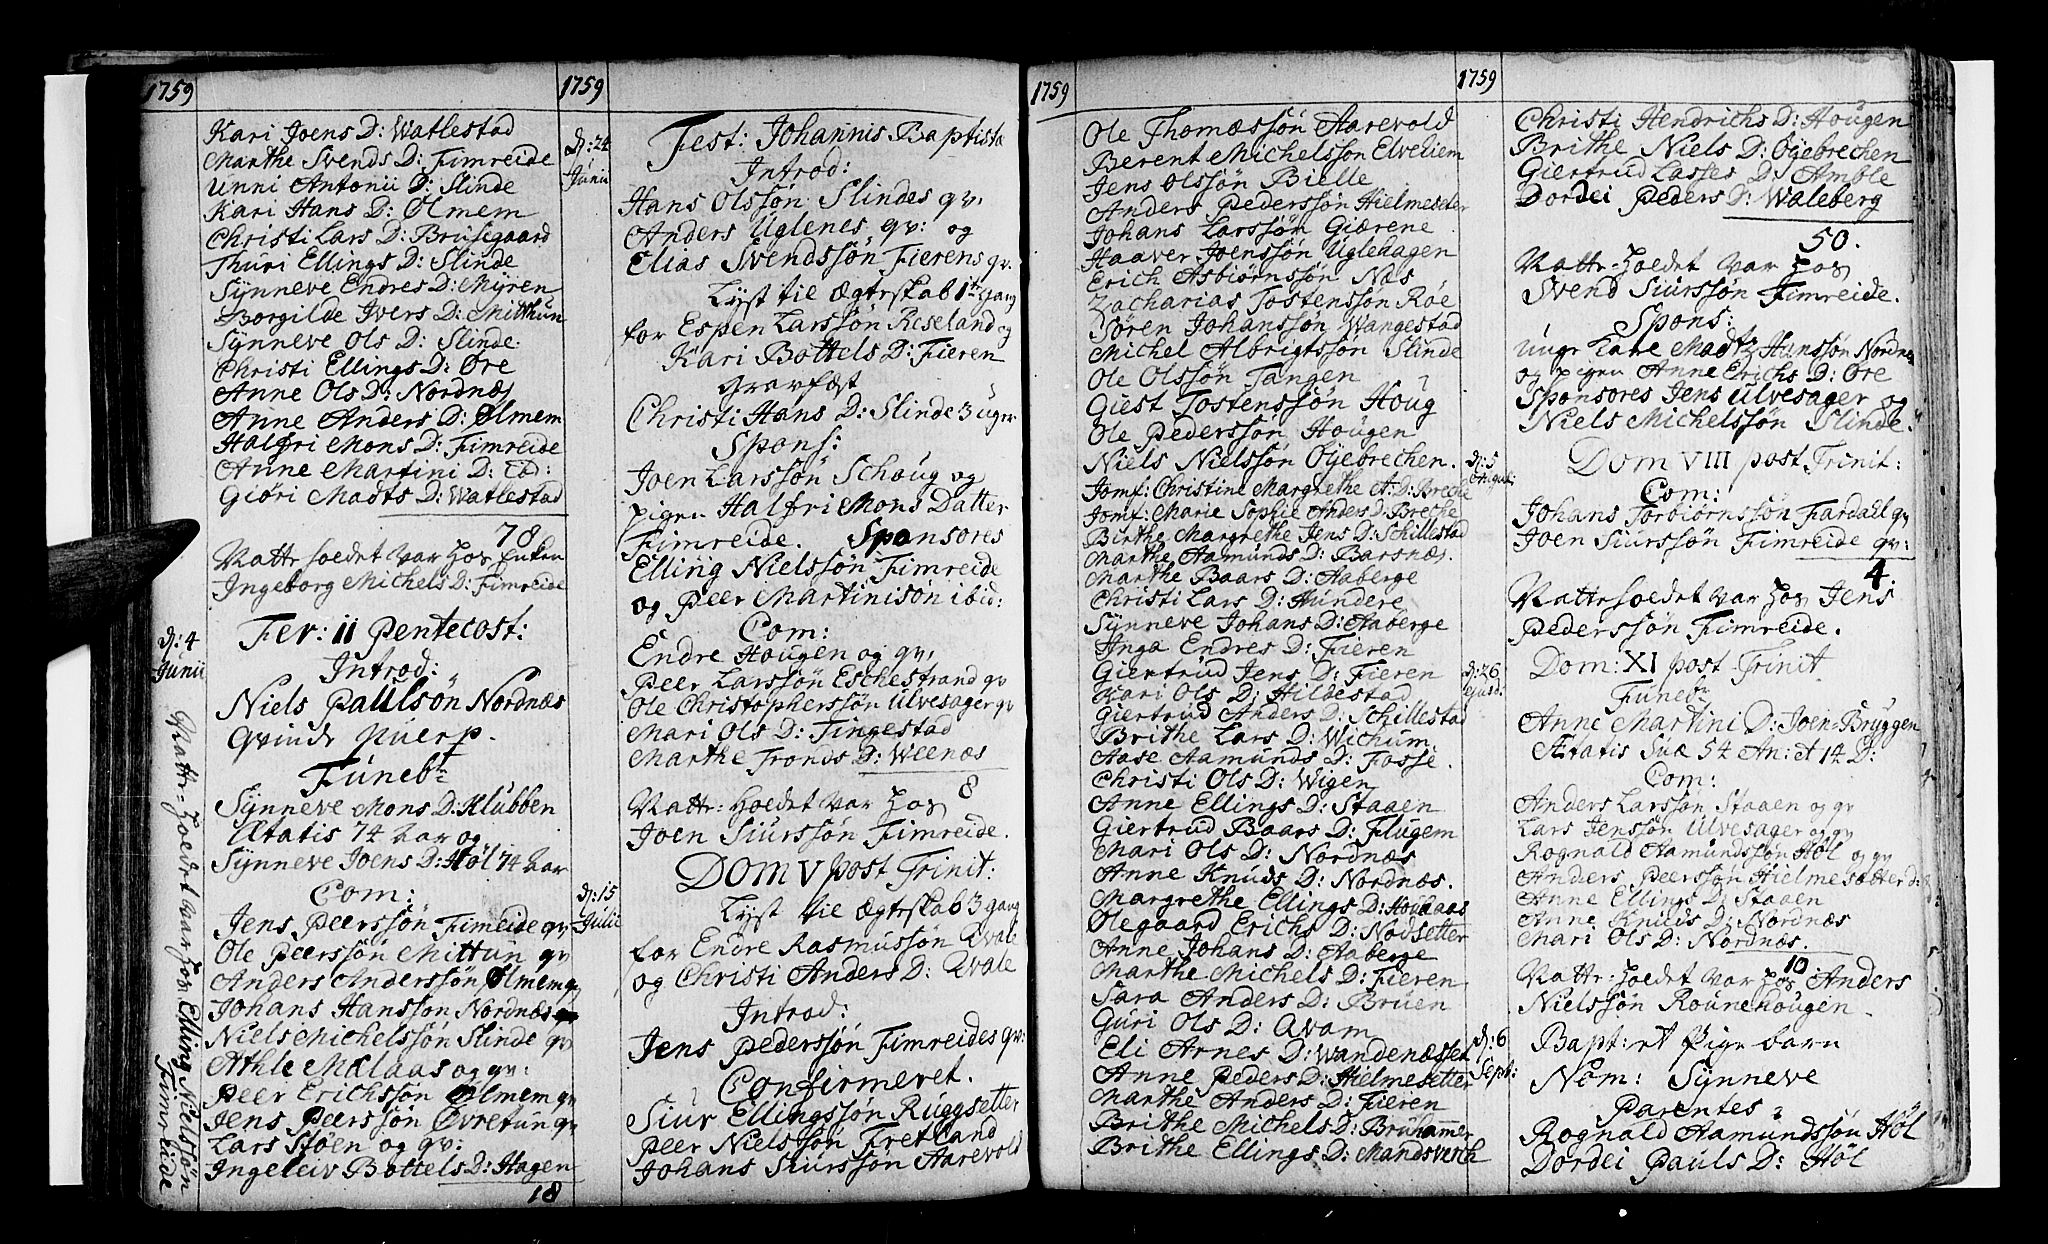 1759
Kari Joens D: Watlestad
Marthe Svends D: Fimreide
Unni Antonii D: Slinde
Kari Hans D: Ølmem
Christi Lars D: Brusegaard
Thuri Ellings D: Slinde
Synneve Endres D: Myren
Borgilde Ivers D: Mitthun
Synneve Ols D: Slinde.
Christi Ellings D: Øre
Anne Ols D: Nordnæs
Anne Anders D: Ølmem
Halfri Mons D: Fimreide
Anne Martini D: Eid:
Giøri Madts D: Watlestad
78
Natte hoedet var hos Enken
Ingeborg Michels D: Fimreide
D: 4 Junii
Fer: II Pentecost:
Introd:
Niels Paulsøn Nordnæs
qvinde puerp.
Funebr
Synneve Mons D: Klubben
Ætatis 74 Aar og
Synneve Joens D: Høl 74 Aar
Com:
Jens Peerssøn Fimreide qv
Ole Peerssøn Mittun qv
Anders Anderssøn Ølmem qv
Johans Hanssøn Nordnæs
Niels Michelssøn Slinde qv
Athle Mælaas og qv:
Peer Erichssøn Ølmem qv
Jens Peerssøn Øvretun qv
Lars Støen og qv:
Ingeleiv Bottels D: Hagen
18
Natte-hoedet var hos Elling Nielssøn
Fimreide
1759
D: 24 Junii
Fest: Johannis Baptistæ
Introd:
Hans Olssøn Slindes qv,
Anders Uglenes qv: og
Elias Svendssøn Fierens qv.
Lyst til Ægteskab 1te gang
for Espen Larssøn Røseland og
Kari Bottels D: Fieren
Gravfæst
Christi Hans D: Slinde 3 uger
Spons:
Joen Larssøn Schoug og
pigen Halfri Mons Datter
Fimreide. Sponsores
Elling Nielssøn Fimreide
og Peer Martinisøn ibid:
Com:
Endre Hougen og qv,
Peer Larssøn Eschestrand qv
Ole Christopherssøn Ulvesager qv
Mari Ols D: Tingestad
Marthe Tronds D: Weenæs
8
Natte-hoedet var hos
Joen Siurssøn Fimreide.
D: 15 Julii
DOM V post Trinit:
Lyst til Ægteskab 3 gang
for Endre Rasmussøn Qvale
og Christi Anders D: Qvale
Introd:
Jens Pederssøn Fimreides qv:
Confirmeret.
Siur Ellingssøn Ruggsetter
Peer Nielssøn Fretland
Johans Siurssøn Aarevold
1759
Ole Thomæssøn Aarevold
Berent Michelssøn Elvediem
Jens Olssøn Bielle
Anders Pederssøn Hielmeseter
Johans Larssøn Giærene
Haaver Joenssøn Uglehagen
Erich Asbiørnssøn Næs
Zacharias Tostenssøn Røe
Søren Johanssøn Wangestad
Michel Albrigtssøn Slinde
Ole Olssøn Tangen
Giest Tostenssøn Houg
Ole Pederssøn Hougen
Niels Nielssøn Øyebrechen.
Jomf: Christine Margrethe A: D: Breche
Jomf: Marie Sophie Anders D: Breche
Birthe Margrethe Jens D: Schillestad
Marthe Aamunds D: Barsnæs.
Marthe Baars D: Aaberge
Christi Lars D: Hundere
Synneve Johans D: Aaberge
Inga Endres D: Fieren
Giertrud Jens D: Fieren
Kari Ols D: Hildestad
Giertrud Anders D: Schillestad
Brithe Lars D: Wichum.
Aase Aamunds D: Fosse.
Christi Ols D: Wigen
Anne Ellings D: Staaen
Giertrud Baars D: Flugem
Mari Ols D: Nordnæs
Anne Knuds D: Nordnæs.
Margrethe Ellings D: Houaas
Olegaard Erichs D: Nodsetter
Anne Johans D: Aaberge
Marthe Michels D: Fieren
Sara Anders D: Bruen
Guri Ols D: Qvam
Eli Arnes D: Wandenæsset
Anne Peders D: Hielmesetter
Marthe Anders D: Fieren
Brithe Michels D: Bruhamer
Brithe Ellings D: Mandsverch
1759
Christi Hendrichs D: Hougen
Brithe Niels D: Øyebrechen
Giertrud Lasses D: Amble
Dordei Peders D: Waleberg
50.
Natte-hoedet var hos
Svend Siurssøn Fimreide.
Spons:
unge Karl Madtz Hanssøn Nordnæs
og pigen Anne Erichs D: Øre
Sponsores Jens Ulvesager og
Niels Michelssøn Slinde.
D: 5 Augusti
Dom VIII post Trinit:
Com:
Johans Torbiørnssøn Fardahl qv
Joen Siurssøn Fimreide qv:
4.
Natte hoedet var hos Jens
Pederssøn Fimreide.
D: 26 ejusd.
Dom: XI post Trinit
Funebr
Anne Martini D: Joen-Bryggen
Ætatis suæ 54 An: et 14 D:
Com:
Anders Larssøn Staaen og qv
Lars Jenssøn Ulvesager og qv
Rognald Aamundssøn Høl og qv
Anders Peerssøn Hielmesætter
Anne Ellings D: Staaen
Anne Knuds D: Nordnæs
Mari Ols D: Nordnæs.
10
Natte-hoedet var hos Anders
Nielssøn Rounehougen.
D: 6 Sept:
Bapt: et Pige barn
Nom: Synneve
Parentes
Rognald Aamundssøn Høl
Dordei Pauls D: Høl